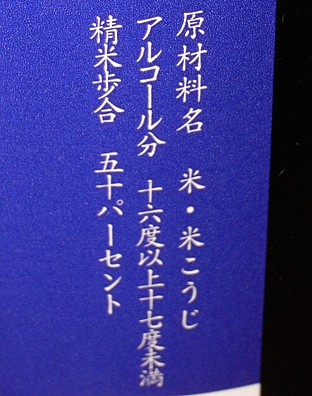 原材料名　米・米こうじ
アルコール分　十六度以上十七度未満
精米歩合　五十パーセント